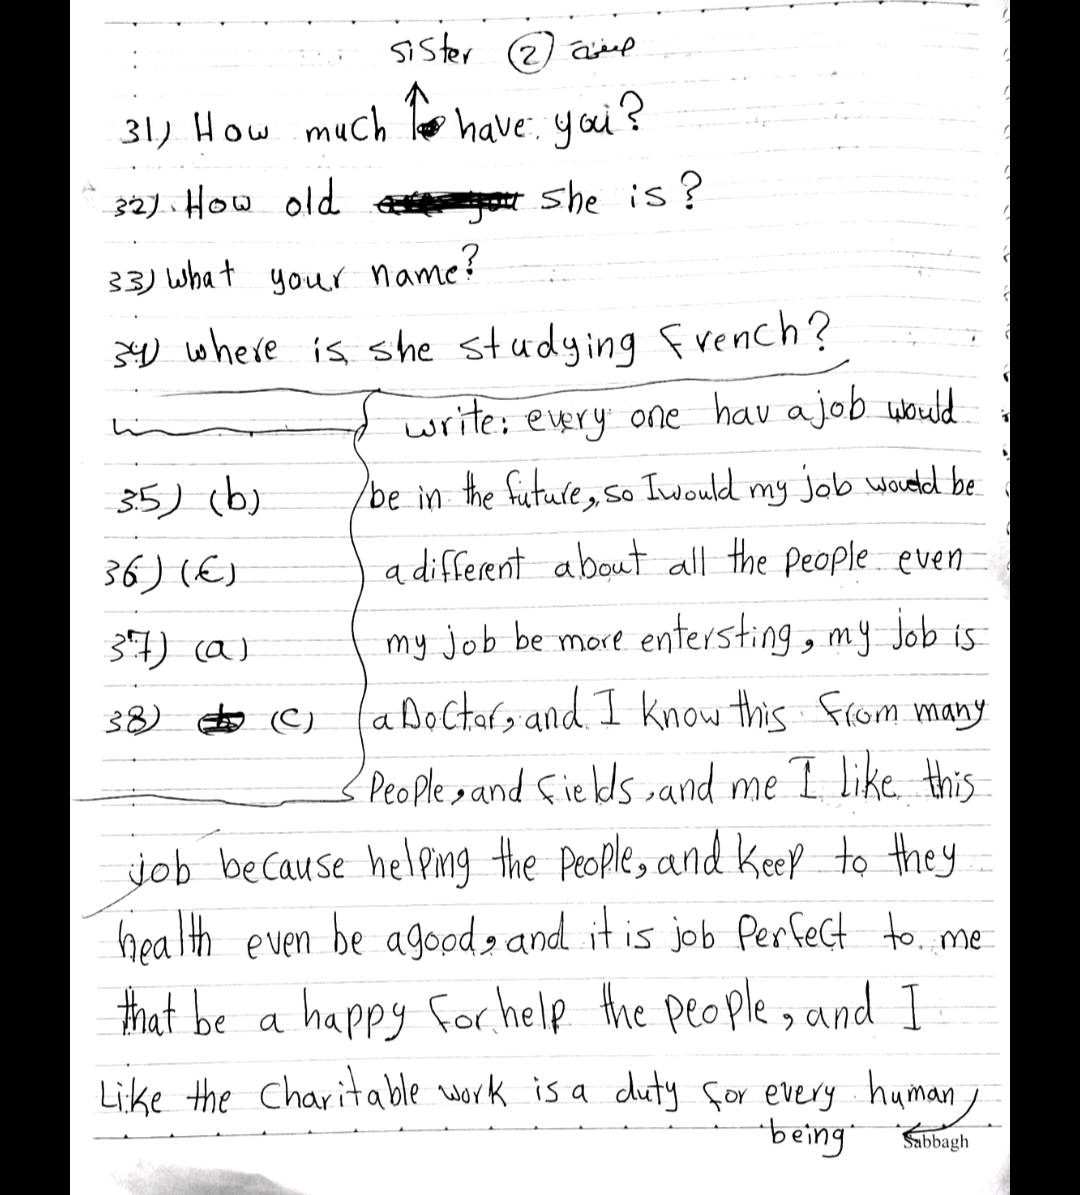 sister ② صفحة
31) How much have you?
32) How old she is?
33) What your name?
34) where is she studying French?
write: every one hav a job would
35) (b)
be in the future, so I would my job would be
36) (c)
a different about all the people even
37) (a)
my job be more entersting, my job is
38) (c)
a Doctor, and I know this from many
People, and fields, and me I like this
job because helping the people, and keep to they
health even be a good, and it is job perfect to me
that be a happy for help the people, and I
Like the Charitable work is a duty for every human
being
Sabbagh